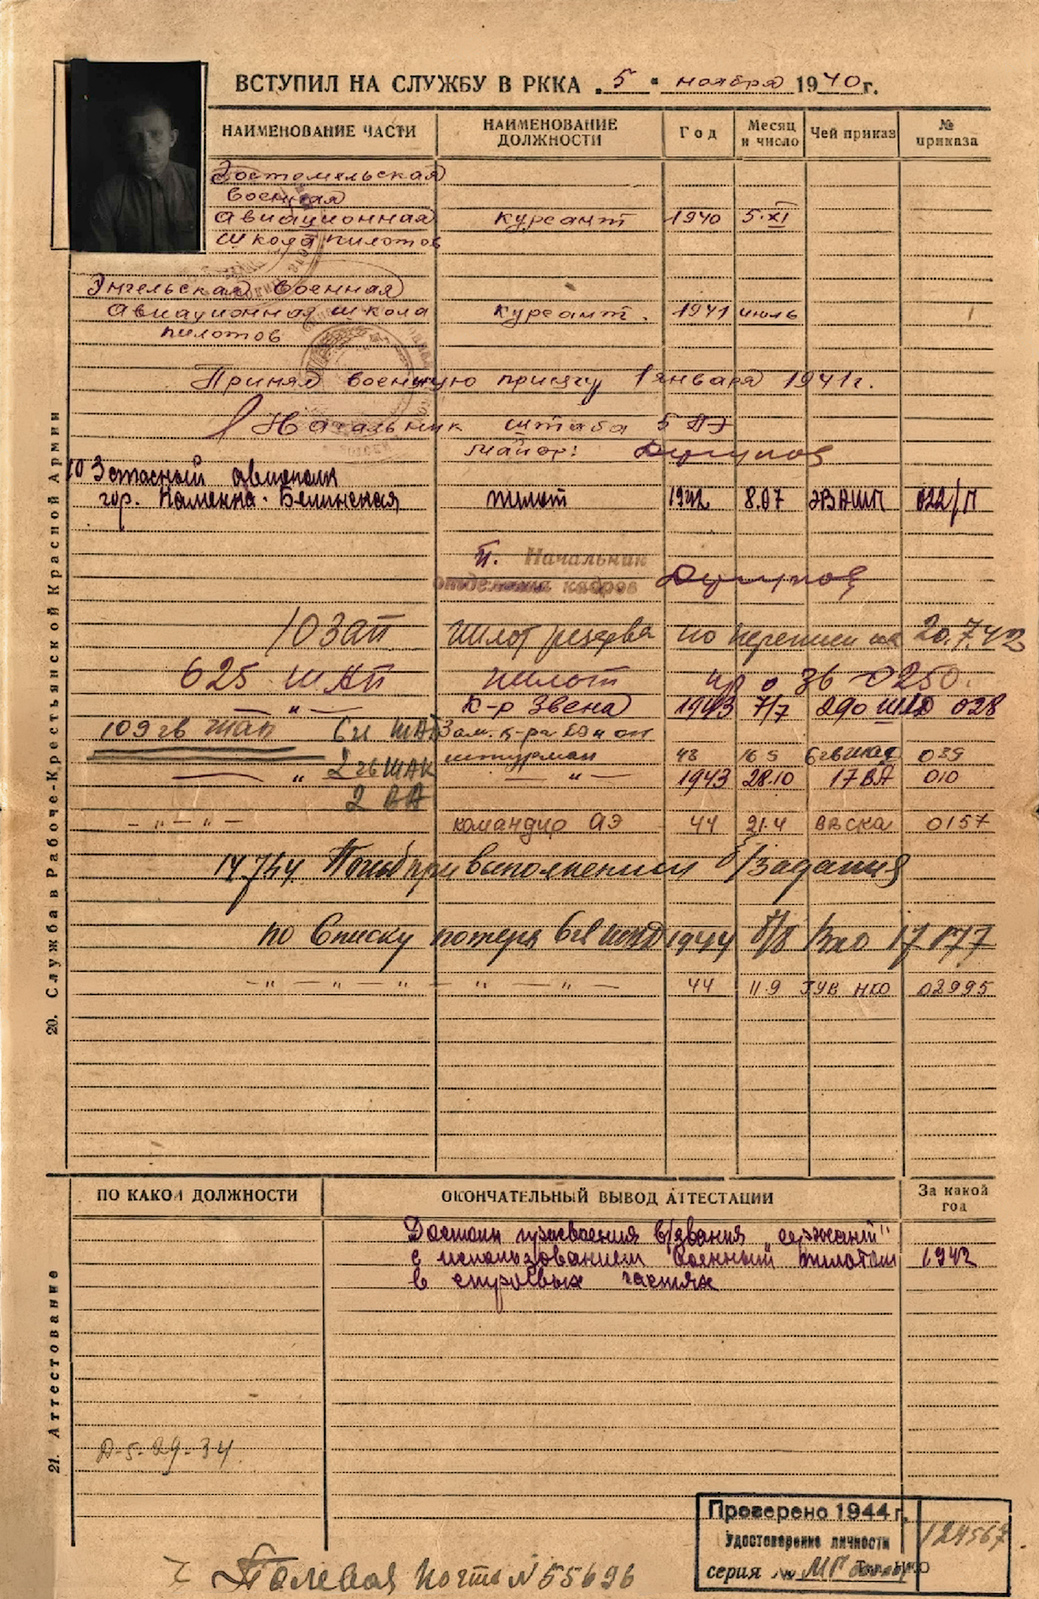 ВСТУПИЛ НА СЛУЖБУ В РККА „5“ ноября 1940 г.
НАИМЕНОВАНИЕ ЧАСТИ НАИМЕНОВАНИЕ ДОЛЖНОСТИ Год Месяц и число Чей приказ № приказа
Гостомельская
военная
авиационная курсант 1940 5.XI
школа пилотов
Энгельская военная
авиационная школа курсант. 1941 июль
пилотов
Принял военную присягу 1 января 1941 г.
Начальник штаба 5 АЭ
майор:
10 Запасный авиополк
гор. Каменка-Белинская пилот 1942 8.07 ЭВАШП 022/П
п. Начальник
отделения кадров
10 ЗАП пилот резерва по переписи на 20.7.42
625 ШАП пилот 0250
—„— К-р Звена 1943 7/7 290 ШАД 028
109 гв шап 6 гв ШАД Зам. к-ра
штурман 43 16 9 6 гв шад 039
—„— 2 гв ШАК —„— 1943 28.10 17 ВА 010
2 ВА
—„—„— командир АЭ 44 21.4 ВВС КА 0157
14.7.44. Погиб при выполнении б/задания
по Списку потерь 6 гв шад 1944 8/8 Вхо 17177
—„—„—„—„—„— 44 11.9 ГУК НКО 02995
20. Служба в Рабоче-Крестьянской Красной Армии
ПО КАКОЙ ДОЛЖНОСТИ ОКОНЧАТЕЛЬНЫЙ ВЫВОД АТТЕСТАЦИИ За какой год
Достоин присвоения в/звания „сержант“
с использованием военным пилотом 1942
в строевых частях
21. Аттестование
Д-5-29-34.
Проверено 1944 г.
Удостоверение личности 124567
серия МГ
Полевая почта N 55696